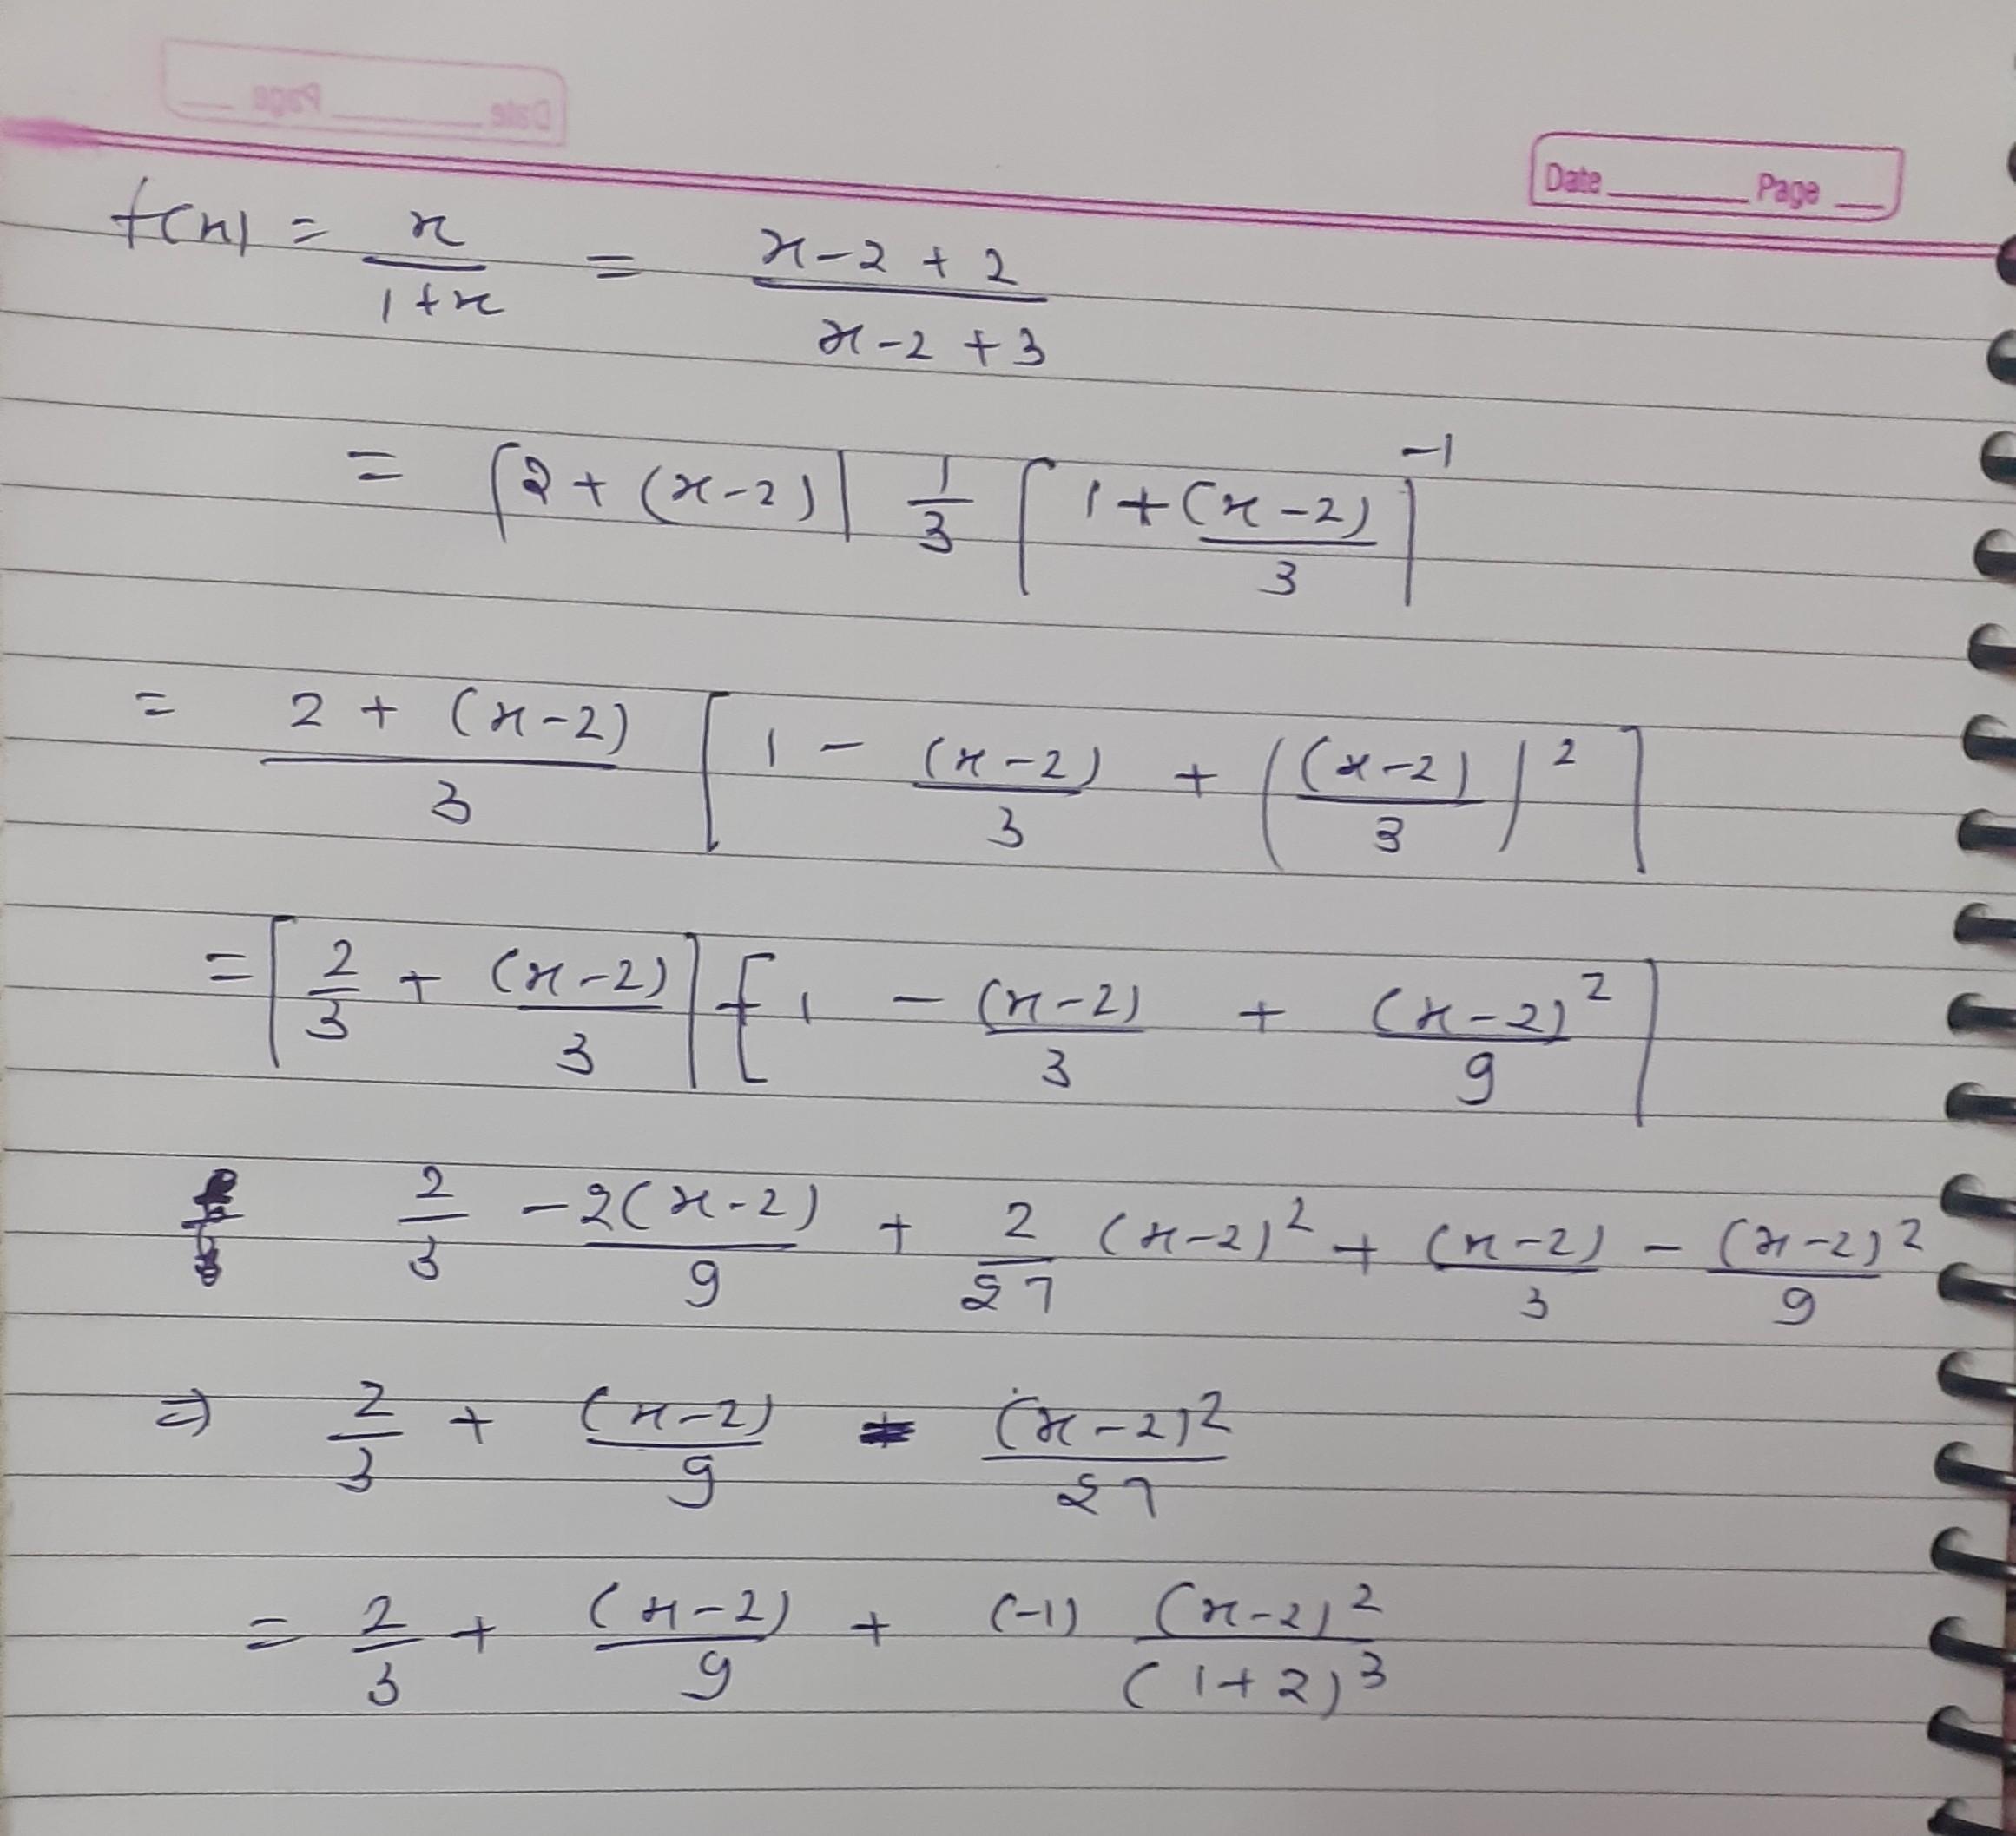 Date ______ Page __
f(x) = x/(1+x) = (x-2+2)/(x-2+3)
= [2+(x-2)] 1/3 [1+(x-2)/3]^-1
= (2+(x-2))/3 [1 - (x-2)/3 + ((x-2)/3)^2]
= [2/3 + (x-2)/3] [1 - (x-2)/3 + (x-2)^2/9]
2/3 - 2(x-2)/9 + 2/27 (x-2)^2 + (x-2)/3 - (x-2)^2/9
⇒ 2/3 + (x-2)/9 - (x-2)^2/27
= 2/3 + (x-2)/9 + (-1) (x-2)^2/(1+2)^3